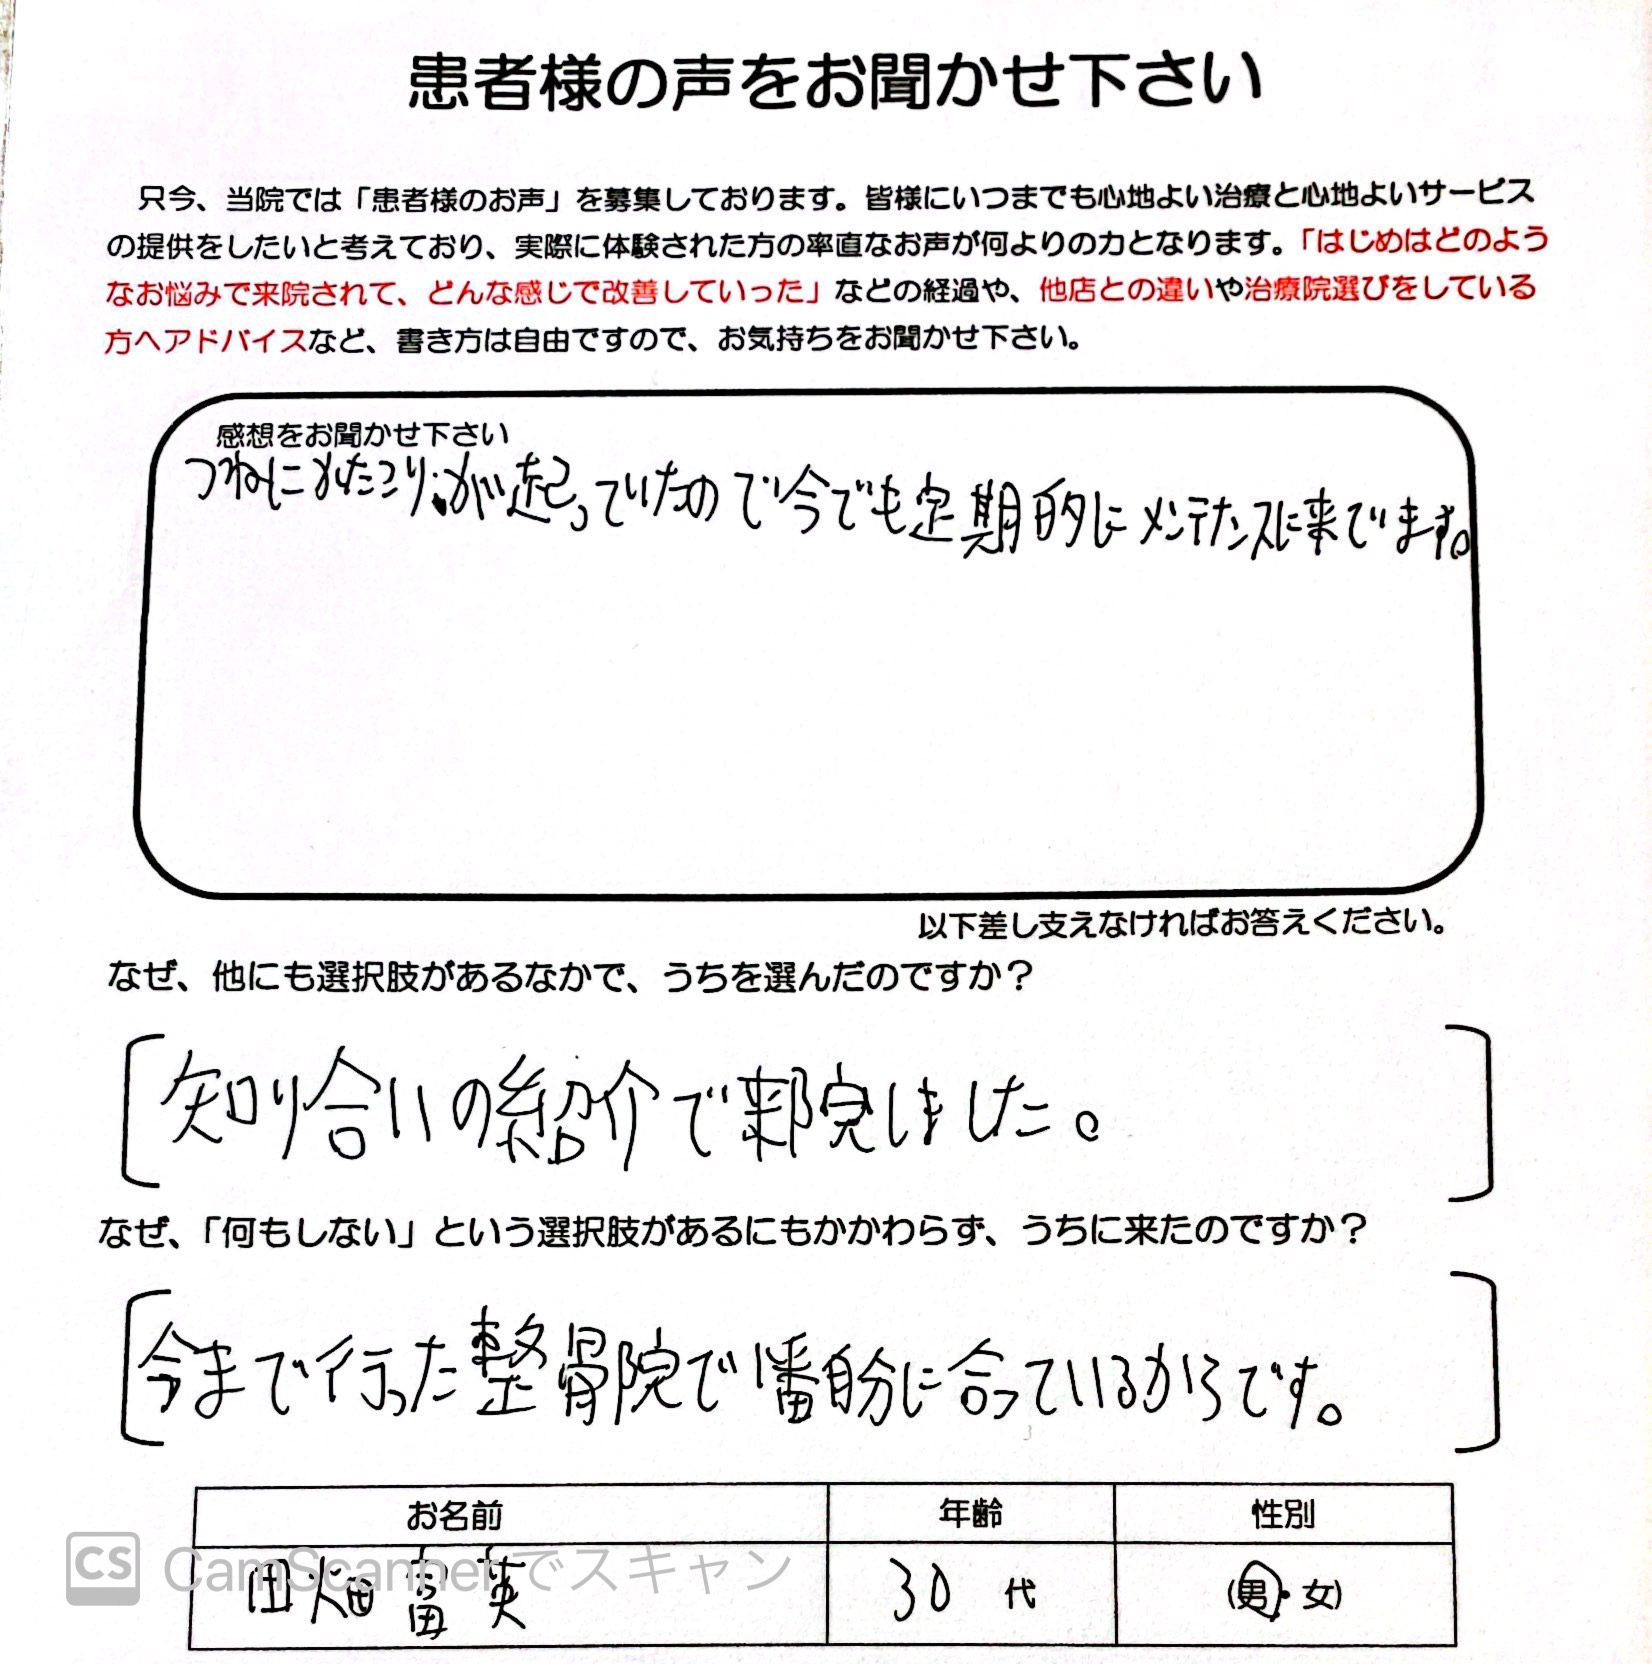 患者様の声をお聞かせ下さい
只今、当院では「患者様のお声」を募集しております。皆様にいつまでも心地よい治療と心地よいサービス
の提供をしたいと考えており、実際に体験された方の率直なお声が何よりの力となります。「はじめはどのよう
なお悩みで来院されて、どんな感じで改善していった」などの経過や、他店との違いや治療院選びをしている
方へアドバイスなど、書き方は自由ですので、お気持ちをお聞かせ下さい。
感想をお聞かせ下さい
つねにかたこりが起っていたので今でも定期的にメンテナンスに来ています。
以下差し支えなければお答えください。
なぜ、他にも選択肢があるなかで、うちを選んだのですか？
知り合いの紹介で来院しました。
なぜ、「何もしない」という選択肢があるにもかかわらず、うちに来たのですか？
今まで行った整骨院で1番自分に合っているからです。
お名前 年齢 性別
田畑 富英 30 代 (男・女)
CS CamScannerでスキャン